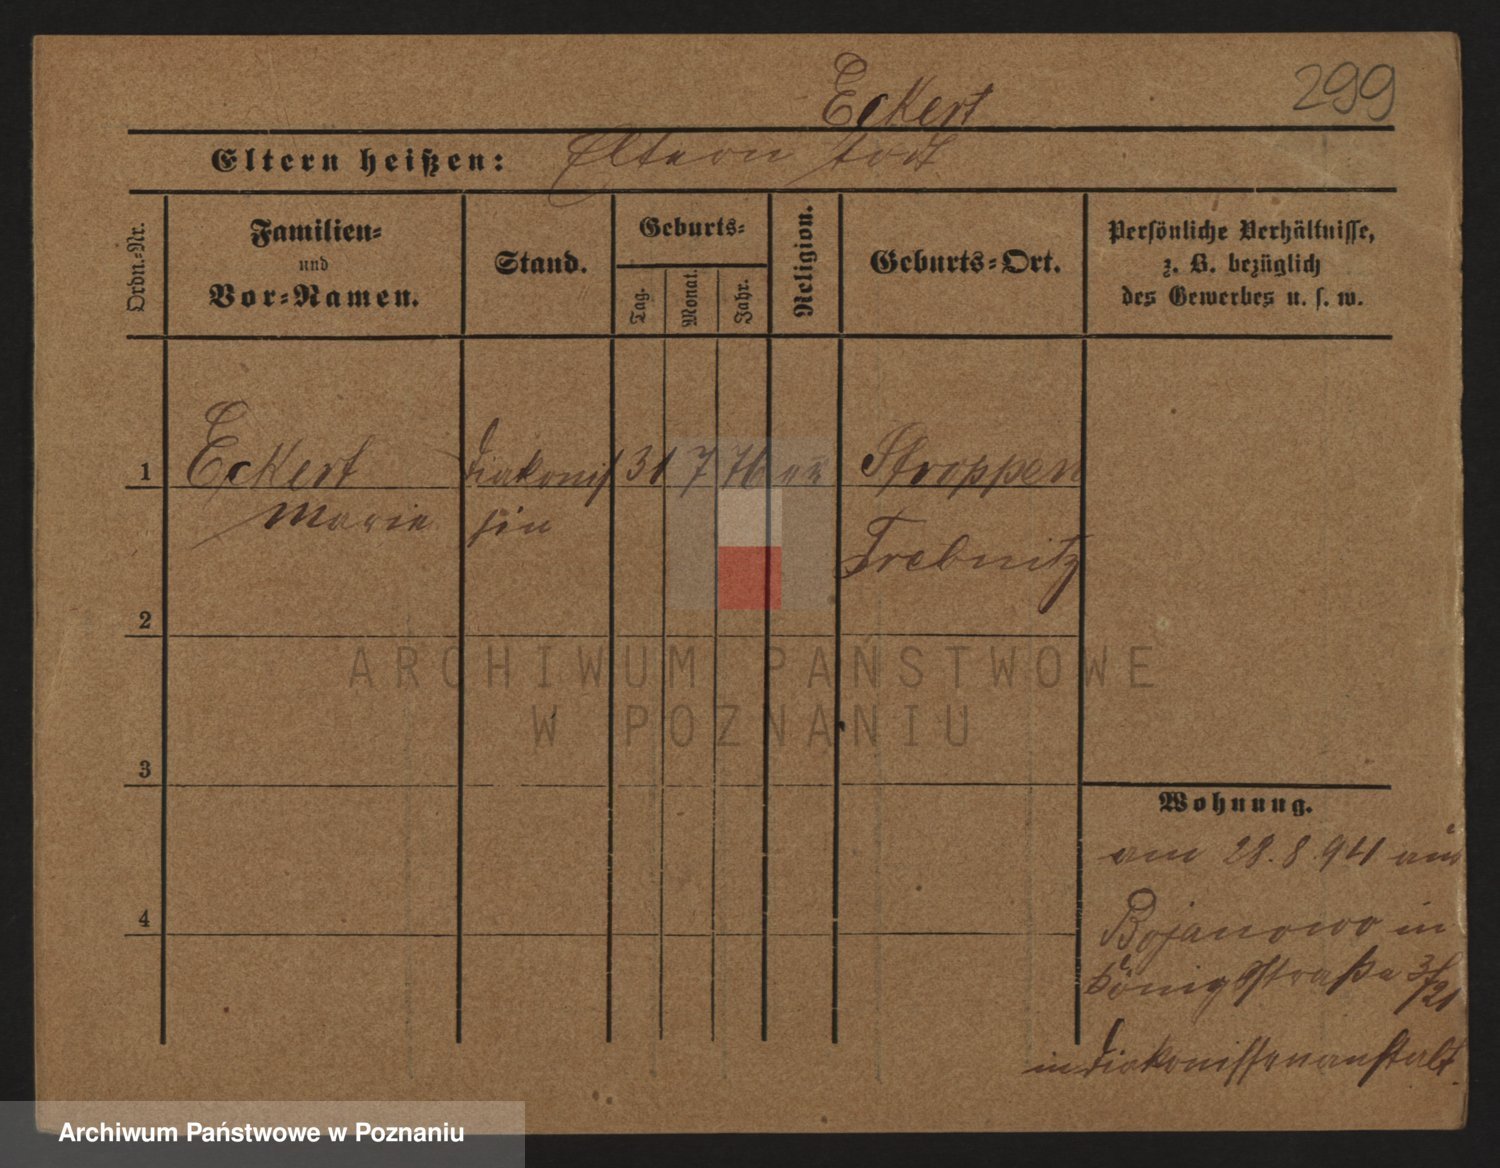 299
Eckert
Eltern heißen: Eltern todt
Ordn.-Nr.
Familien-
und
Vor-Namen.
Stand.
Geburts-
Tag.
Monat.
Jahr.
Religion.
Geburts-Ort.
Persönliche Verhältnisse,
z. B. bezüglich
des Gewerbes u. s. w.
1 Eckert Diakonis 31 7 76 Stroppen
Marie sin
Trebnitz
2
ARCHIWUM PAŃSTWOWE
W POZNANIU
3
Wohnung.
am 28.8.94 aus
Bojanowo in
4
Königsstraße 3/21
in Diakonissenanstalt.
Archiwum Państwowe w Poznaniu